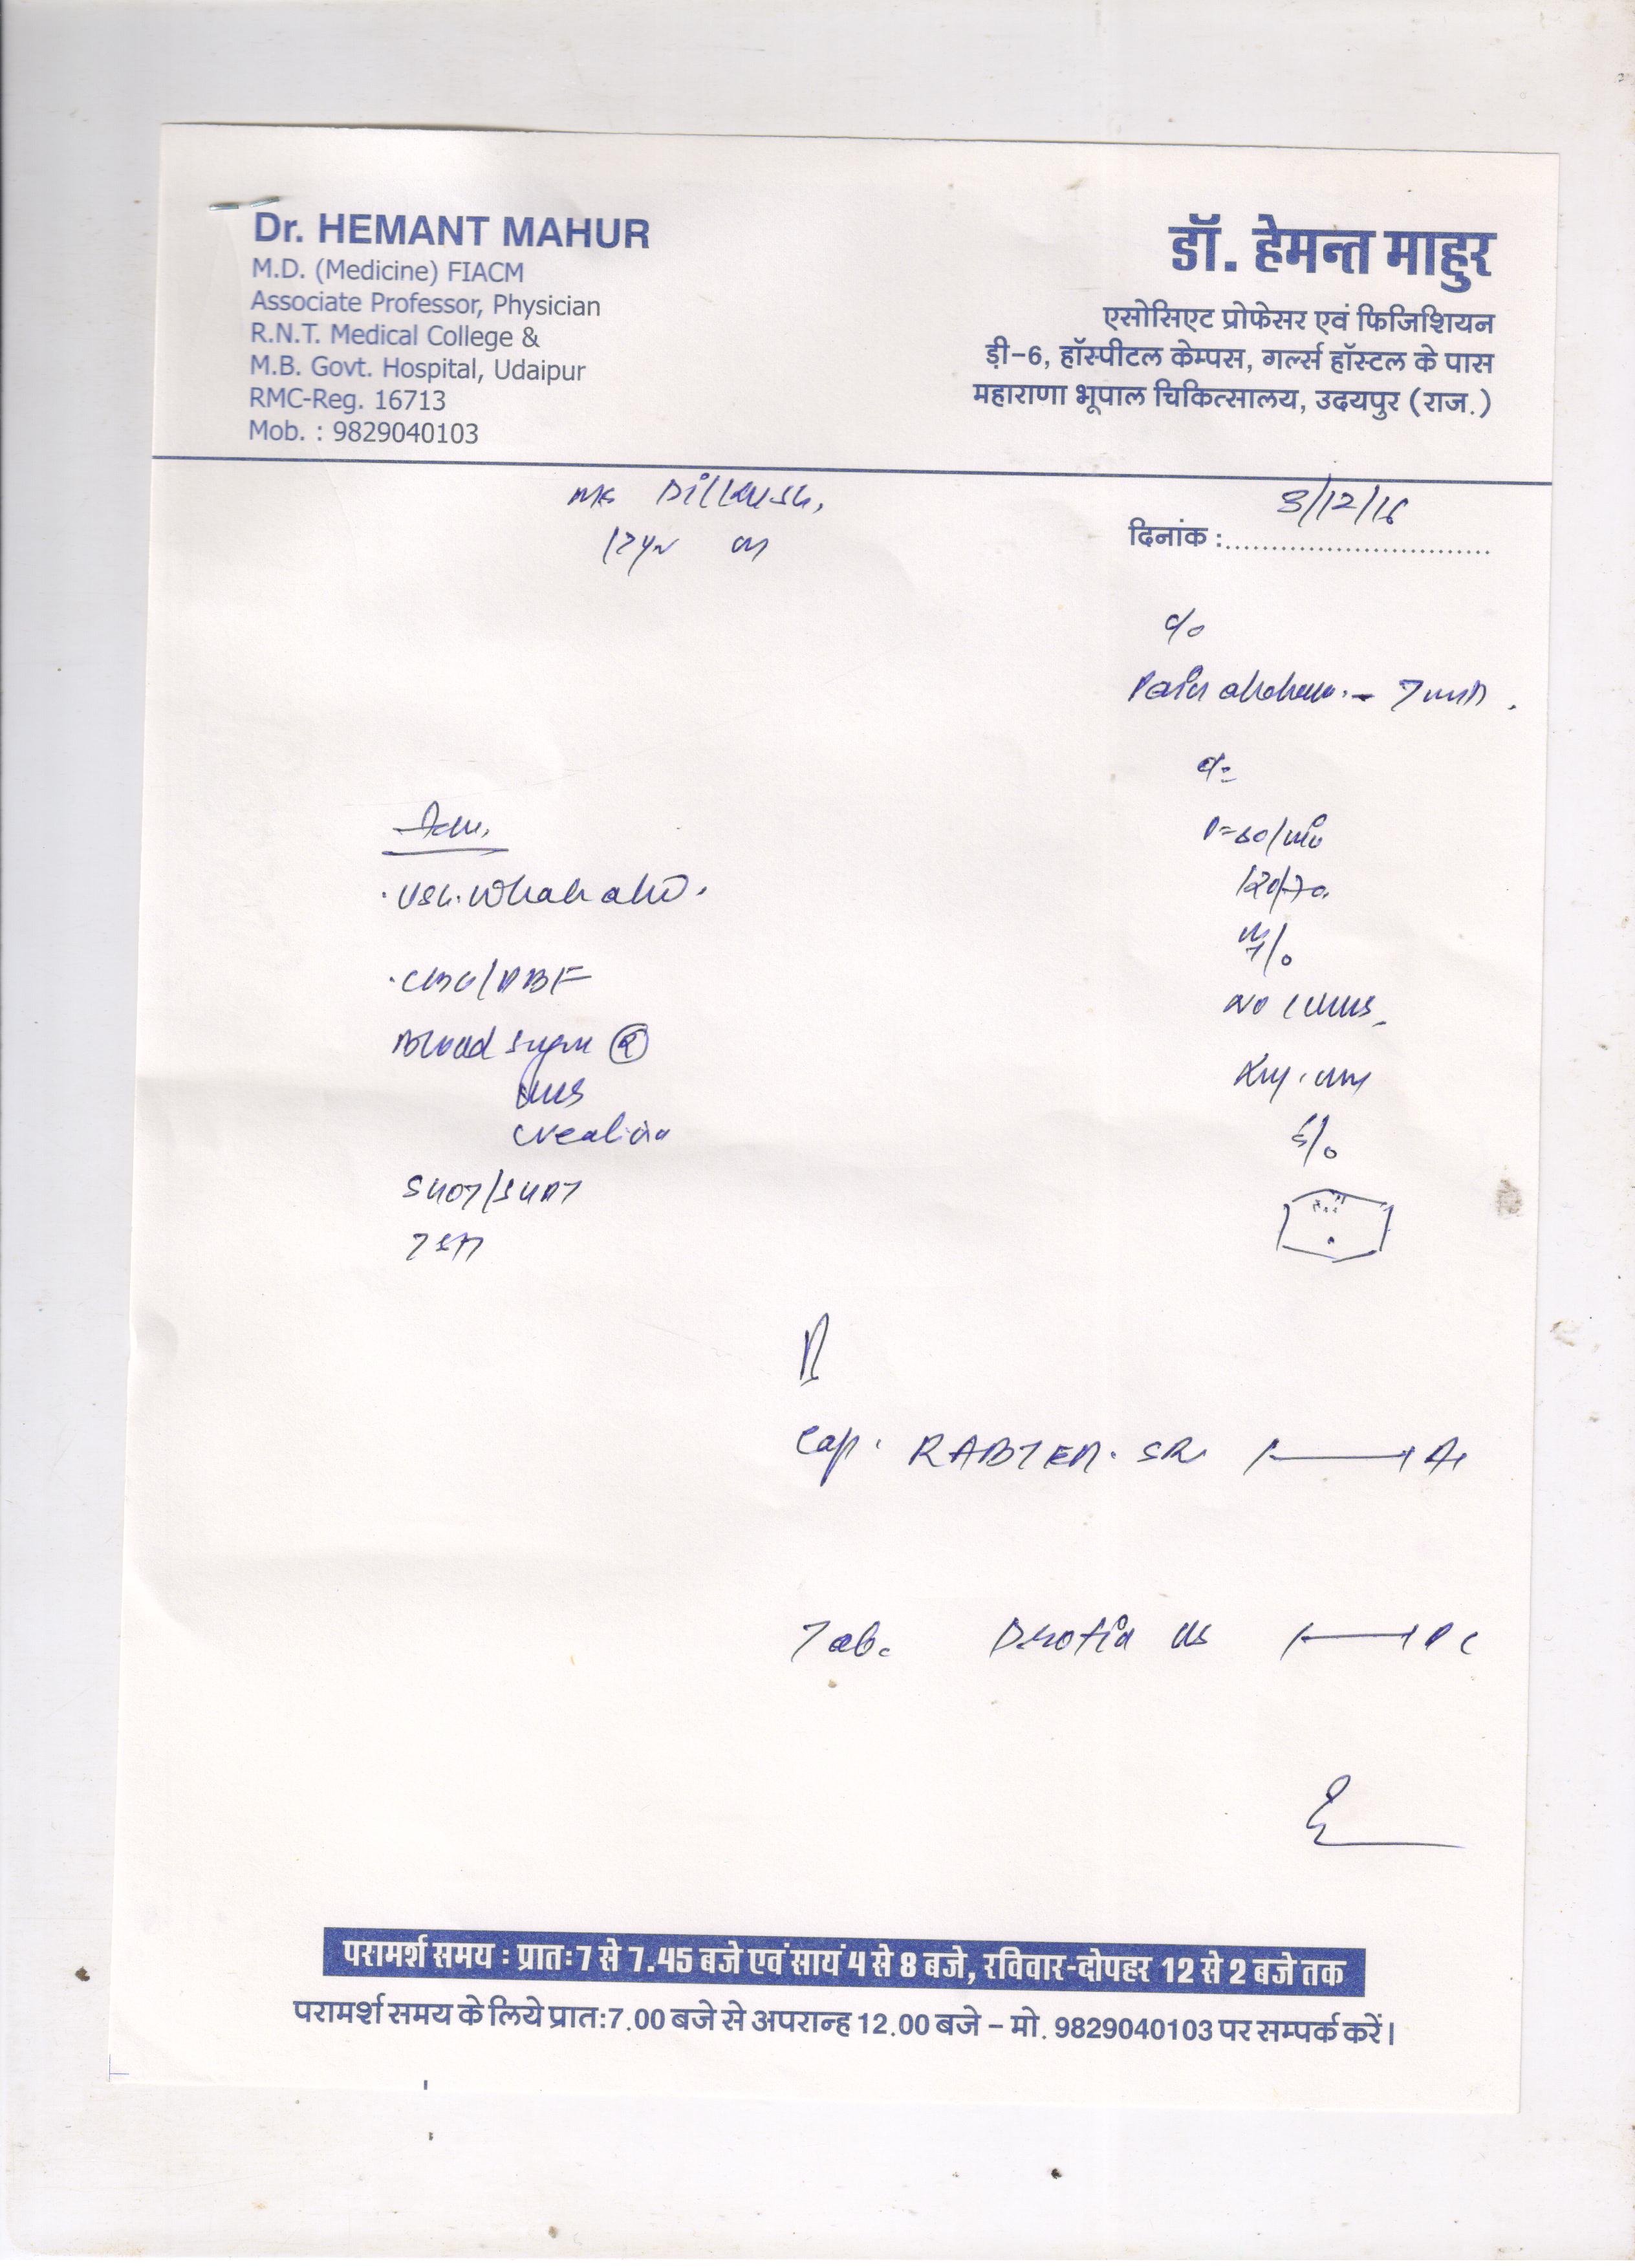 Dr. HEMANT MAHUR
M.D. (Medicine) FIACM
Associate Professor, Physician
R.N.T. Medical College &
M.B. Govt. Hospital, Udaipur
RMC-Reg. 16713
Mob. : 9829040103
डॉ. हेमन्त माहुर
एसोसिएट प्रोफेसर एवं फिजिशियन
ड़ी-6, हॉस्पीटल केम्पस, गर्ल्स हॉस्टल के पास
महाराणा भूपाल चिकित्सालय, उदयपुर (राज.)
Dilkush,
17yr M
दिनांक : 3/12/16
c/o
Pain abdomen -
P=80/min
120/70
Adv.
. USG. Whole abd.
. CBC/PBF
Blood sugar (R)
Creatinine
SGOT/SGPT
Cap. RABTER. SR
Tab. Drotin DS
परामर्श समय : प्रातः7 से 7.45 बजे एवं सायं 4 से 8 बजे, रविवार-दोपहर 12 से 2 बजे तक
परामर्श समय के लिये प्रातः7.00 बजे से अपरान्ह 12.00 बजे – मो. 9829040103 पर सम्पर्क करें।